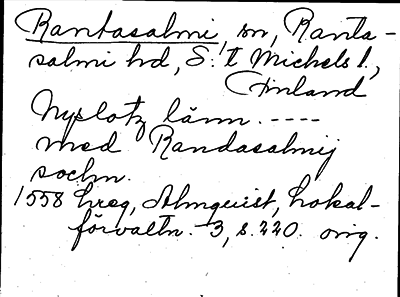 Rantasalmi, sn, Ranta-
salmi hd, S:t Michels l.,
Finland
Nyslotz länn. ----
med Randasalmij
sochn.
1558 hreg, Almquist, Lokal-
förvaltn. 3, s. 220. orig.